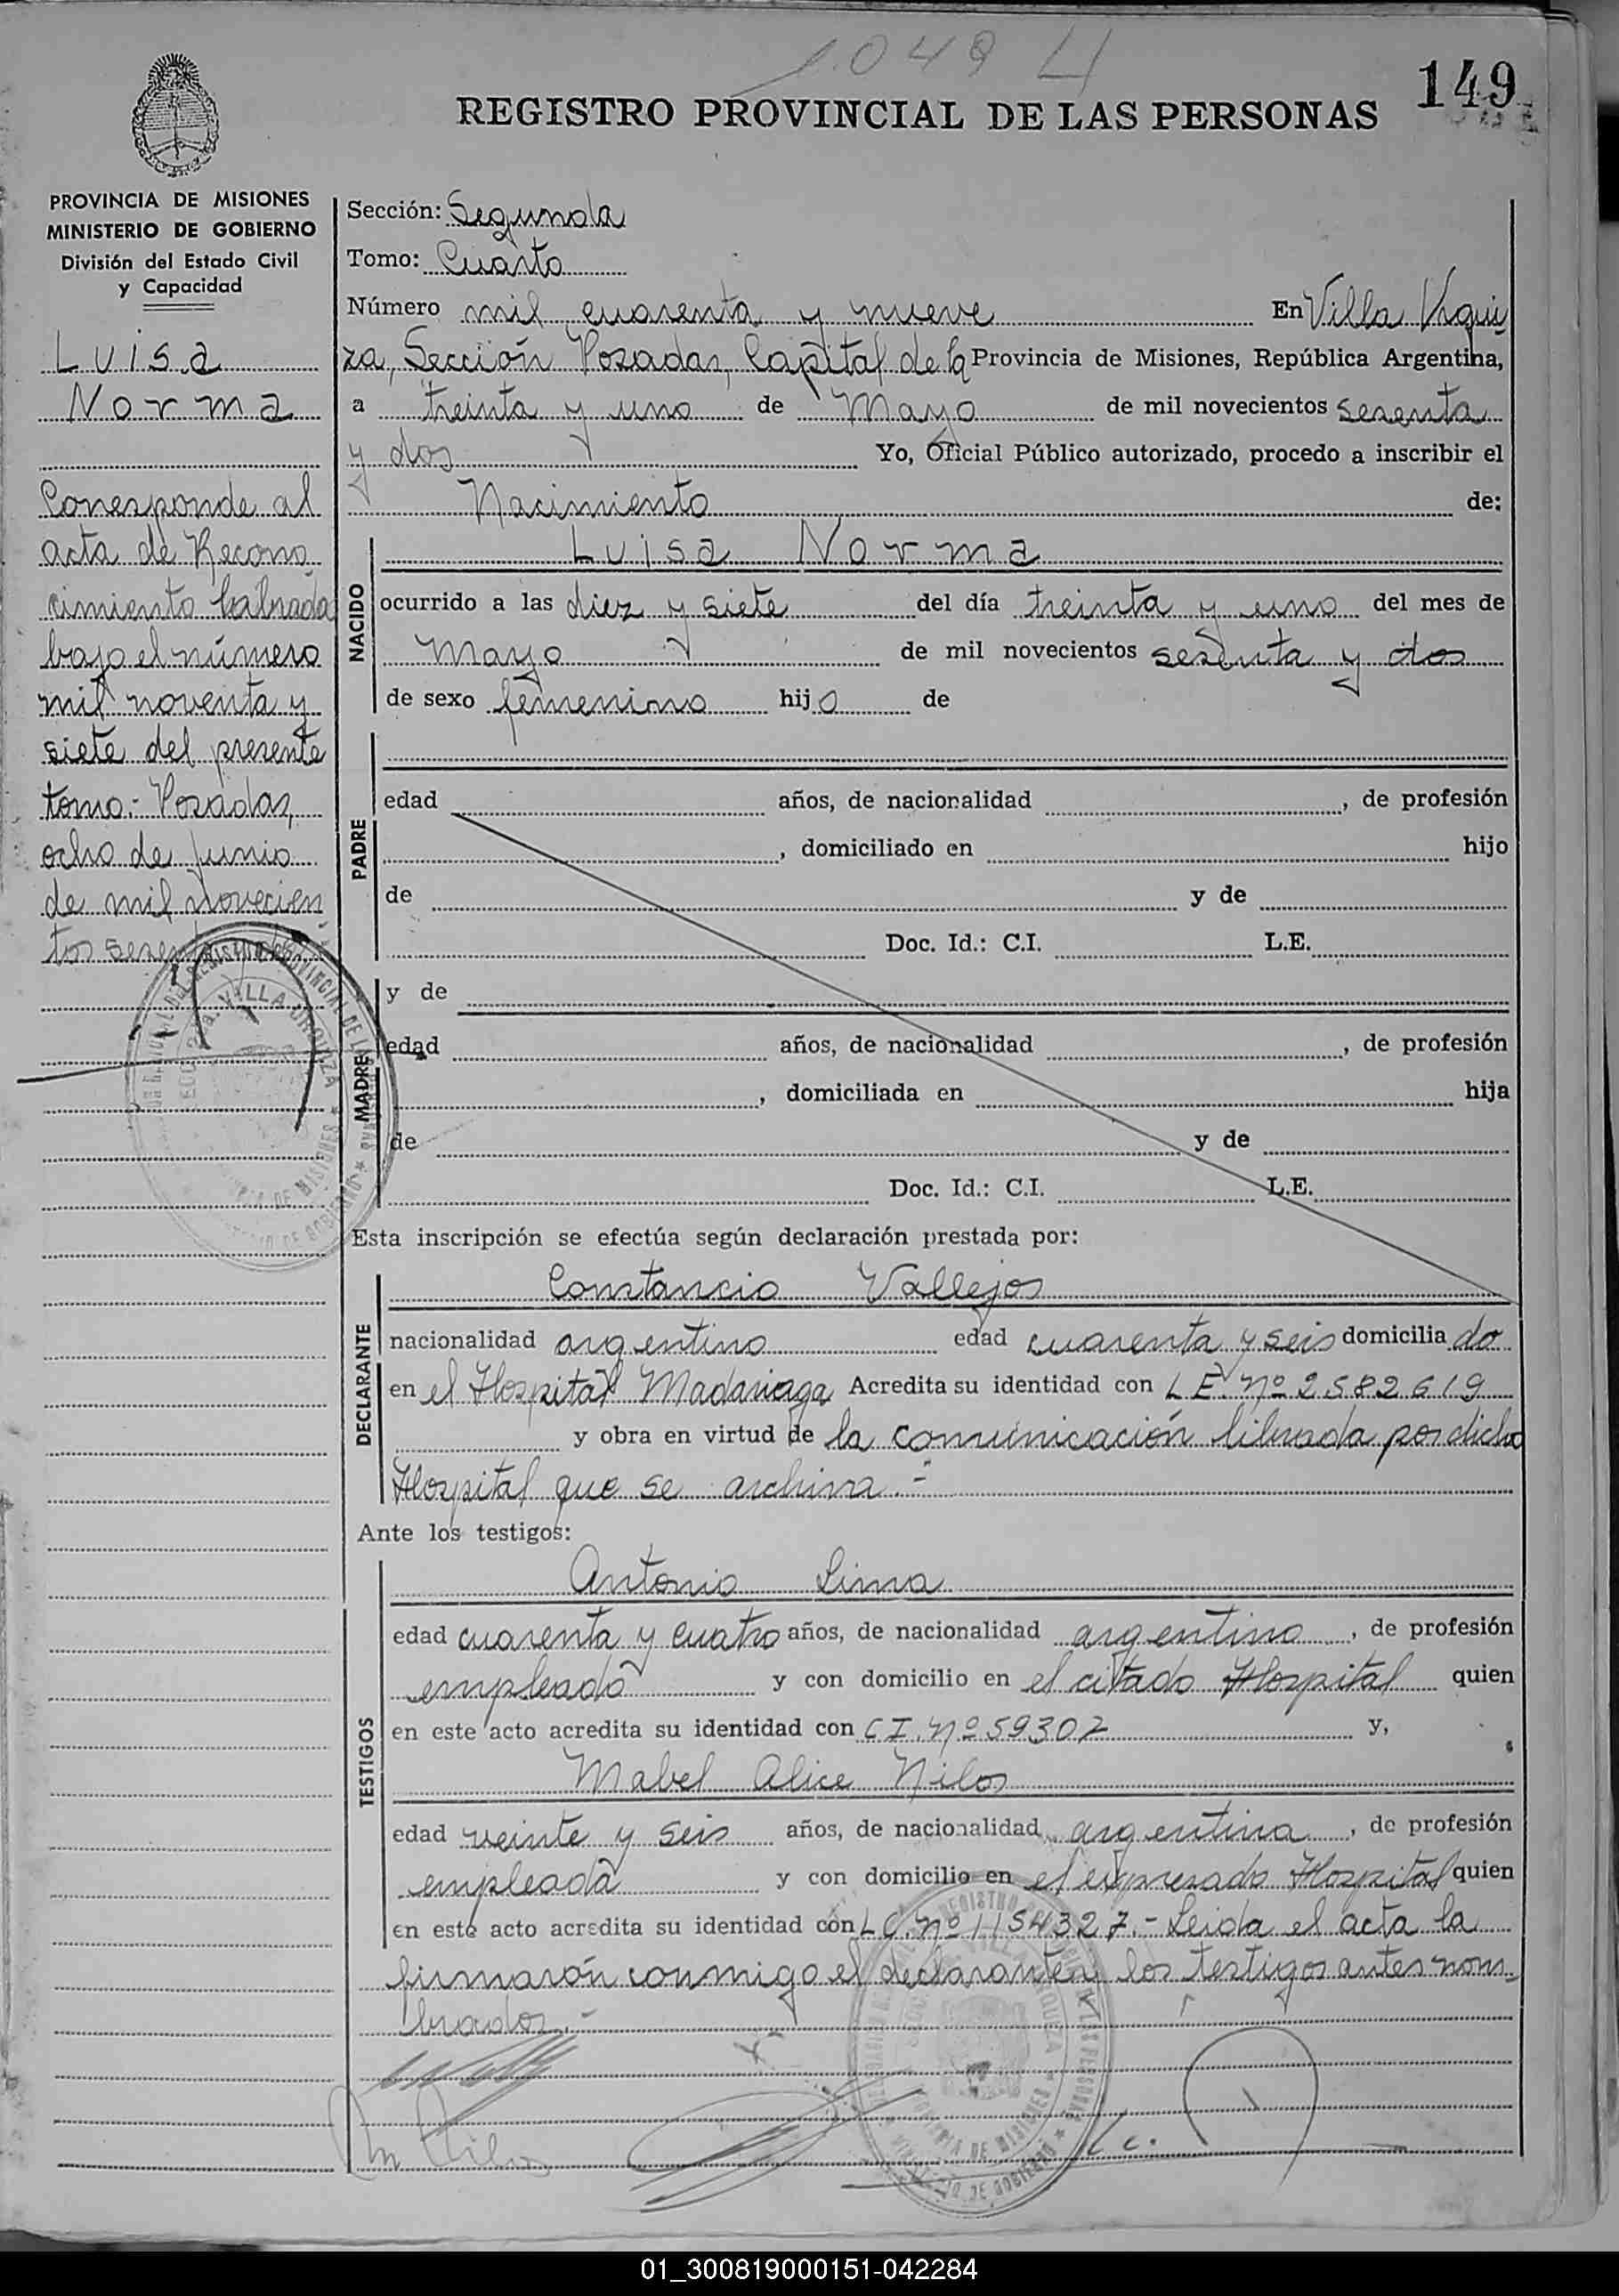 1049 H
149
REGISTRO PROVINCIAL DE LAS PERSONAS
PROVINCIA DE MISIONES
MINISTERIO DE GOBIERNO
División del Estado Civil
y Capacidad
Luisa
Norma
Corresponde al
acta de Recono
cimiento labrada
bajo el número
mil noventa y
siete del presente
tomo.- Posadas,
ocho de junio
de mil novecien
tos sesenta y dos
Sección: Segunda
Tomo: Cuarto
Número mil cuarenta y nueve En Villa Urqui
za, Sección Posadas, Capital de la Provincia de Misiones, República Argentina,
a treinta y uno de Mayo de mil novecientos sesenta
y dos Yo, Oficial Público autorizado, procedo a inscribir el
Nacimiento de:
Luisa Norma
NACIDO
ocurrido a las diez y siete del día treinta y uno del mes de
Mayo de mil novecientos sesenta y dos
de sexo femenino hijo de
PADRE
edad años, de nacionalidad , de profesión
, domiciliado en hijo
de y de
Doc. Id.: C.I. L.E.
y de
MADRE
edad años, de nacionalidad , de profesión
, domiciliada en hija
de y de
Doc. Id.: C.I. L.E.
Esta inscripción se efectúa según declaración prestada por:
Constancio Vallejos
DECLARANTE
nacionalidad argentino edad cuarenta y seis domiciliado
en el Hospital Madariaga Acredita su identidad con L E. Nº 2582619
y obra en virtud de la comunicación librada por dicho
Hospital que se archiva.-
Ante los testigos:
Antonio Lima
TESTIGOS
edad cuarenta y cuatro años, de nacionalidad argentino , de profesión
empleado y con domicilio en el citado Hospital quien
en este acto acredita su identidad con C I. Nº 59302 y,
Mabel Alice Nilos
edad veinte y seis años, de nacionalidad argentina , de profesión
empleada y con domicilio en el expresado Hospital quien
en este acto acredita su identidad con L C. Nº 1154327.- Leida el acta la
firmarón conmigo el declarante y los testigos antes nom
brados.-
01_300819000151-042284